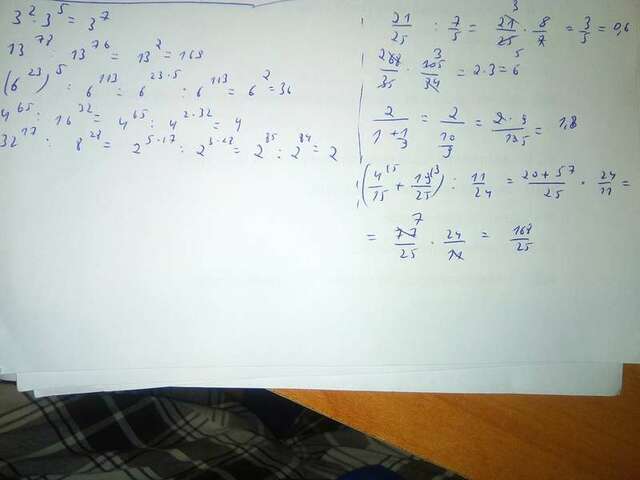 3² · 3⁵ = 3⁷
13⁷⁸ : 13⁷⁶ = 13² = 169
(6²³)⁵ : 6¹¹³ = 6²³·⁵ : 6¹¹³ = 6² = 36
4⁶⁵ : 16³² = 4⁶⁵ : 4²·³² = 4
32¹⁷ : 8²⁸ = 2⁵·¹⁷ : 2³·²⁸ = 2⁸⁵ : 2⁸⁴ = 2
21/25 : 7/5 = 21/25 · 8/7 = 3/5 = 0,6
/35 · 105/34 = 2·3 = 6
2/(1+1/9) = 2/(10/9) = 2·9/10 5 = 1,8
(4/15 + 19/25) : 11/24 = 20+57/25 · 24/11 =
= 77 7/25 · 24/11 = 168/25